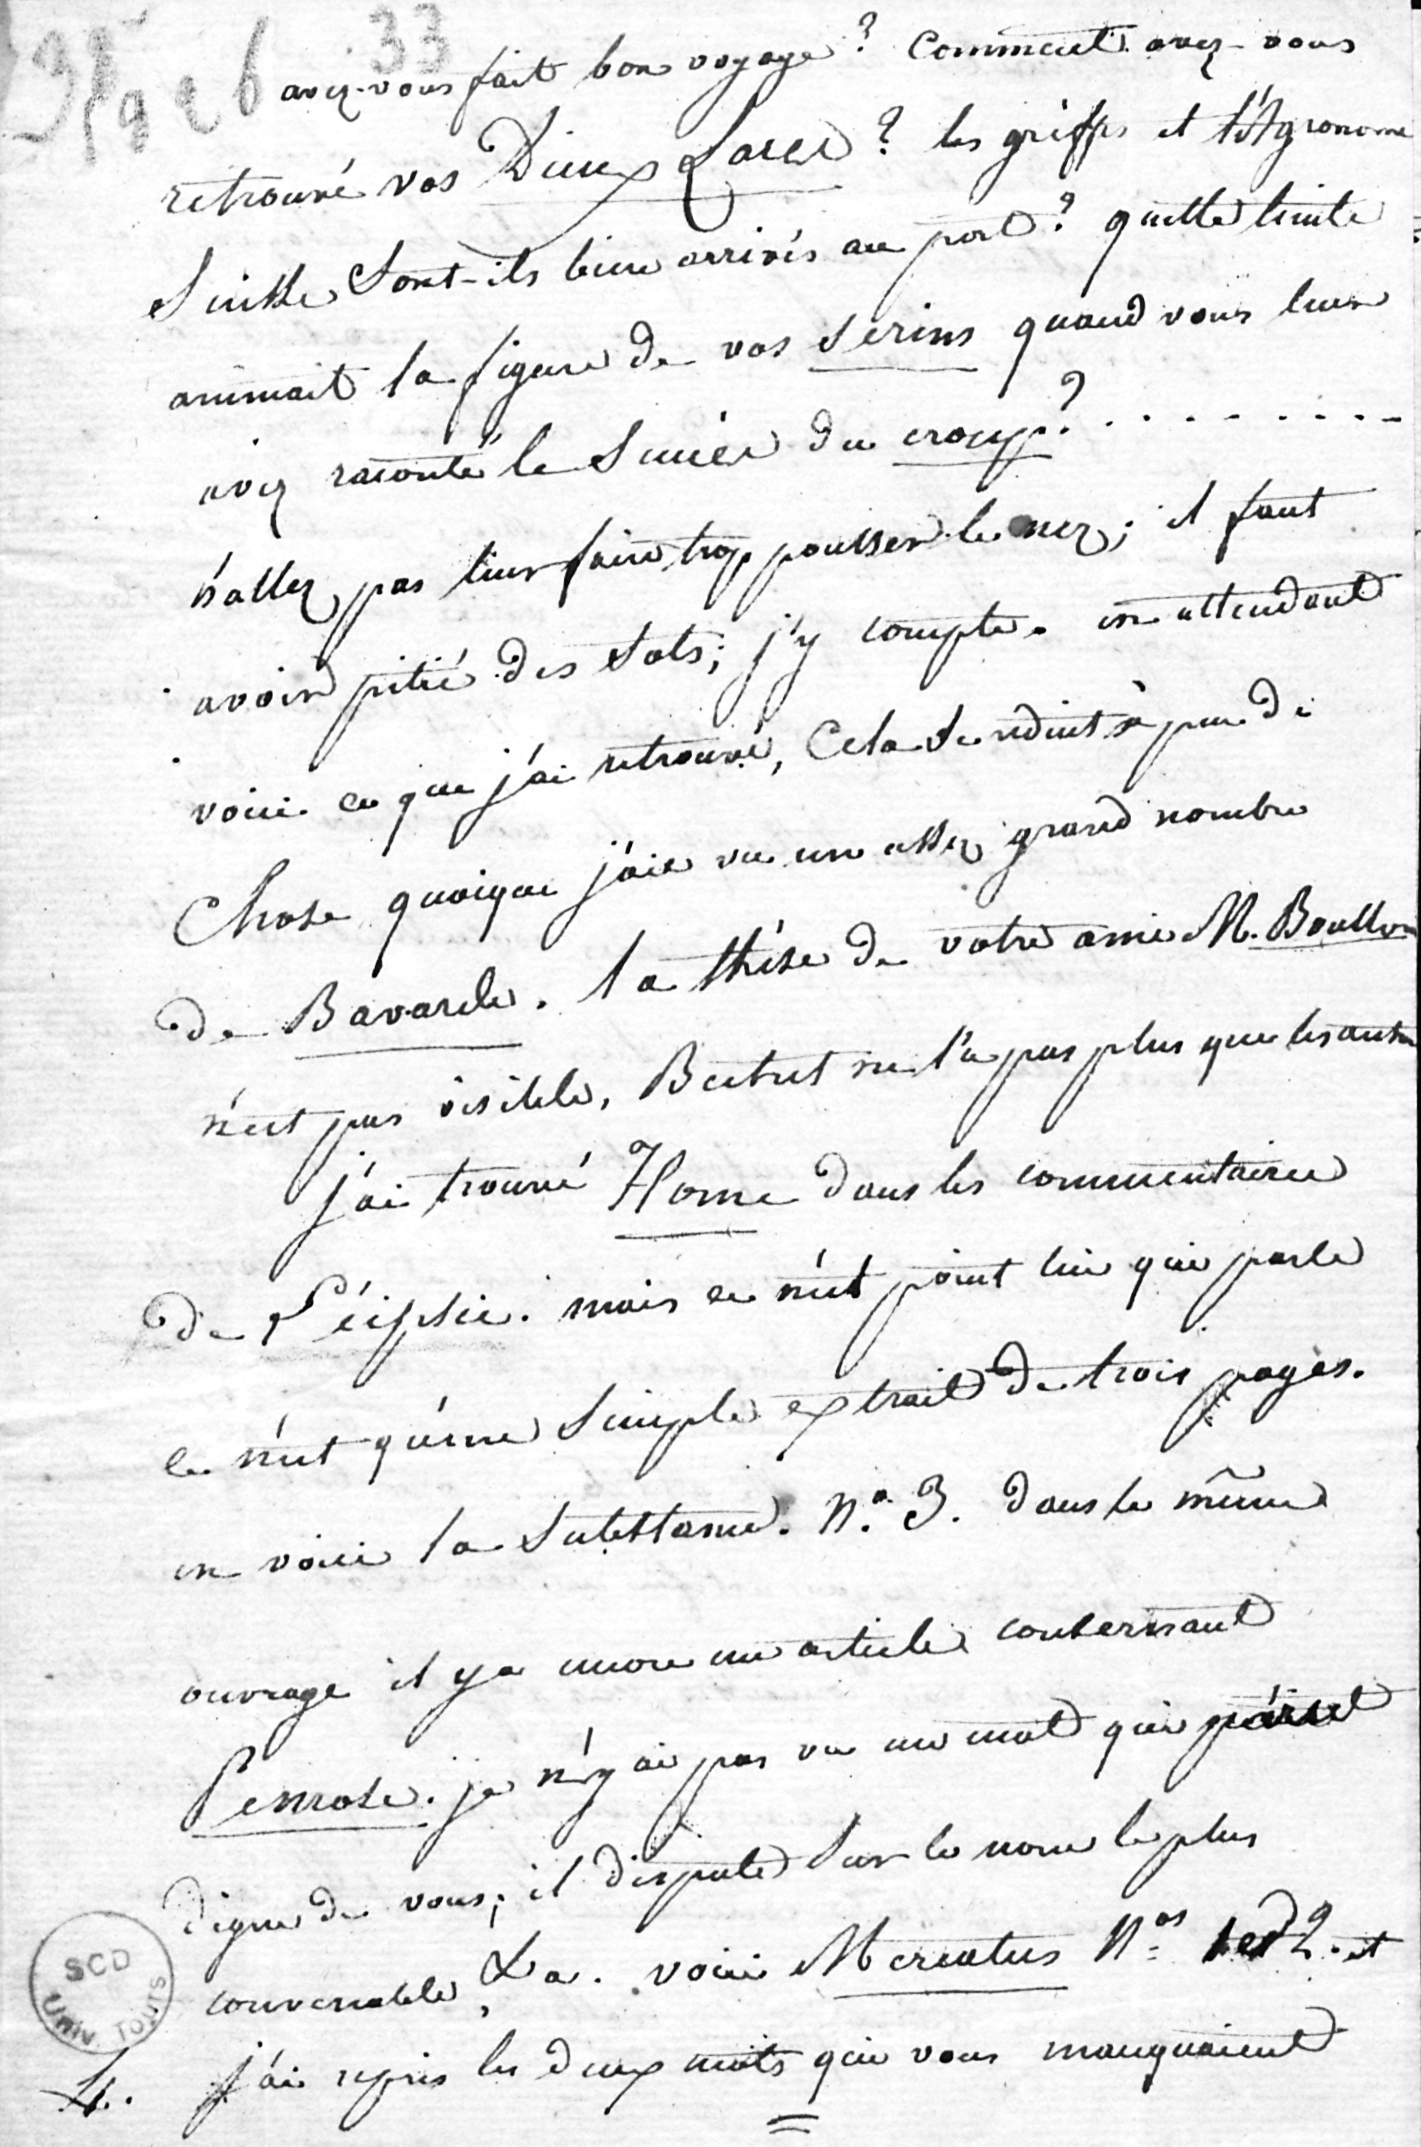 33
avez-vous fait bon voyage? Comment avez-vous
retrouvé vos Dieux Lares? les griffes et l'Agronome
Suisse sont-ils bien arrivés au port? quelle teinte
animait la figure de vos serins quand vous leur
avez raconté le succès du croup? . . . . . . . . .
n'allez pas leur faire trop pousser le nez; il faut
avoir pitié des sots; j'y compte. en attendant
voici ce que j'ai retrouvé, Cela se réduit à peu de
Chose quoique j'aie vu un assez grand nombre
de Bavards. la thèse de votre ami M. Boullon
n'est pas visible, Beclut ne l'a pas plus que les autres
j'ai trouvé Home dans les commentaires
de Leipsic. mais ce n'est point lui qui parle
ce n'est qu'une simple extrait de trois pages.
en voici la substance. N.o 3. dans le même
ouvrage il y a encore un article concernant
Penrose. je n'y ai pas vu un mot qui parut
digne de vous; il dispute sur le nom le plus
convenable, &a. voici Mercatus N.os 1 et 2. et
4. j'ai repris les deux mots qui vous manquaient
SCD
Univ. Tours